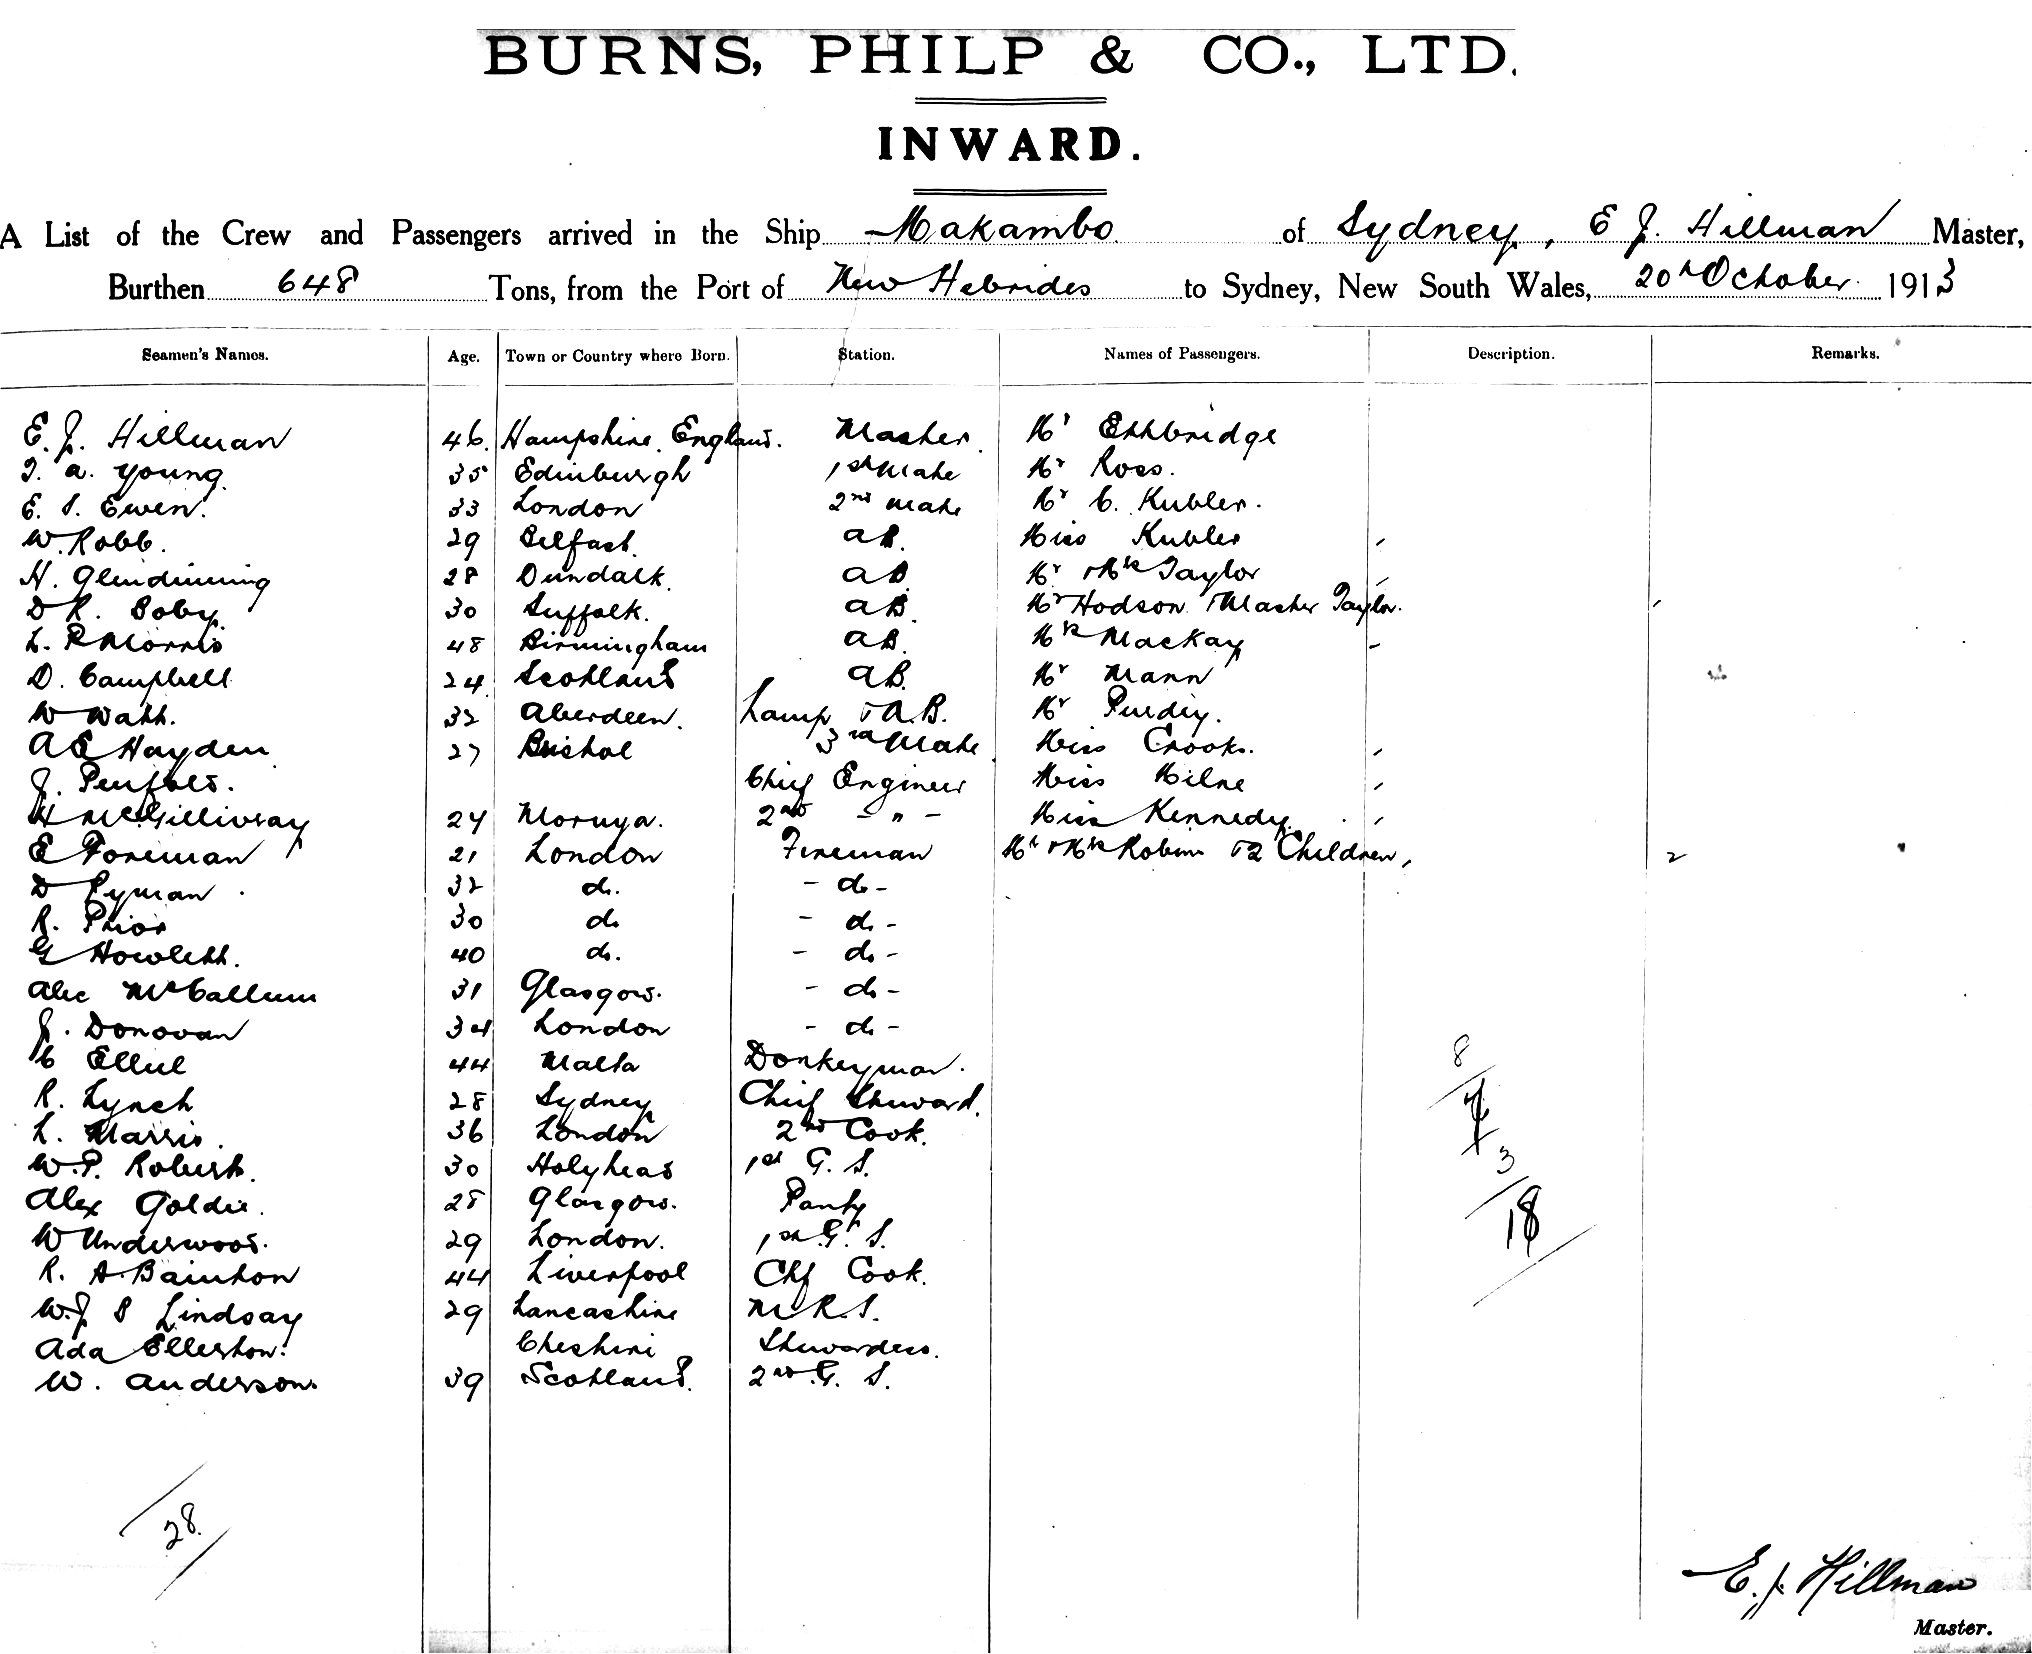 BURNS, PHILP & CO., LTD.
INWARD.
A List of the Crew and Passengers arrived in the Ship Makambo of Sydney, E J. Hillman Master,
Burthen 648 Tons, from the Port of New Hebrides to Sydney, New South Wales, 20th October 1913
Seamen's Names. Age. Town or Country where Born. Station. Names of Passengers. Description. Remarks.
E. J. Hillman 46 Hampshire. England. Master. Mr Ethbridge
T. A. Young 35 Edinburgh 1st Mate Mr Ross.
E. S. Ewen. 33 London 2nd Mate Mr C. Kubler.
W. Robb. 29 Belfast. AB. Miss Kubler
H. Glindinning 28 Dundalk. AB Mr & Mrs Taylor
D R. Boby. 30 Suffolk. AB. Mr Hodson & Master Taylor.
L. P Morris 48 Birmingham AB. Mrs Mackay
D. Campbell 24 Scotland AB. Mr Mann
W Watt. 32 Aberdeen. Lamp & A.B. Mr Purdy.
A E Hayden 27 Bristol 3rd Mate Miss Crooks.
J. Penfold. Chief Engineer Miss Milne
H McGillivray 24 Moruya. 2nd - " - Miss Kennedy
E Foreman 21 London Fireman Mr & Mrs & 2 Children, 2
D Pyman 32 do. - do -
R. Prior 30 do - do -
G Howlett. 40 do. - do -
Alec McCallum 31 Glasgow. - do -
J. Donovan 34 London - do -
C Ellul 44 Malta Donkeyman.
8
R. Lynch 28 Sydney Chief Steward.
7
L. Marris. 36 London 2nd Cook.
W. P. Roberts. 30 Holyhead 1st G. S.
3
Alex Goldie. 28 Glasgow. Pantry
18
W Underwood. 29 London. 1st G. S.
R. A. Bainton 44 Liverpool Chf Cook.
W. J S Lindsay 29 Lancashire M.R.S.
Ada Ellerton. Cheshire Stewardess.
W. Anderson. 39 Scotland. 2nd G. S.
28.
E. J. Hillman
Master.